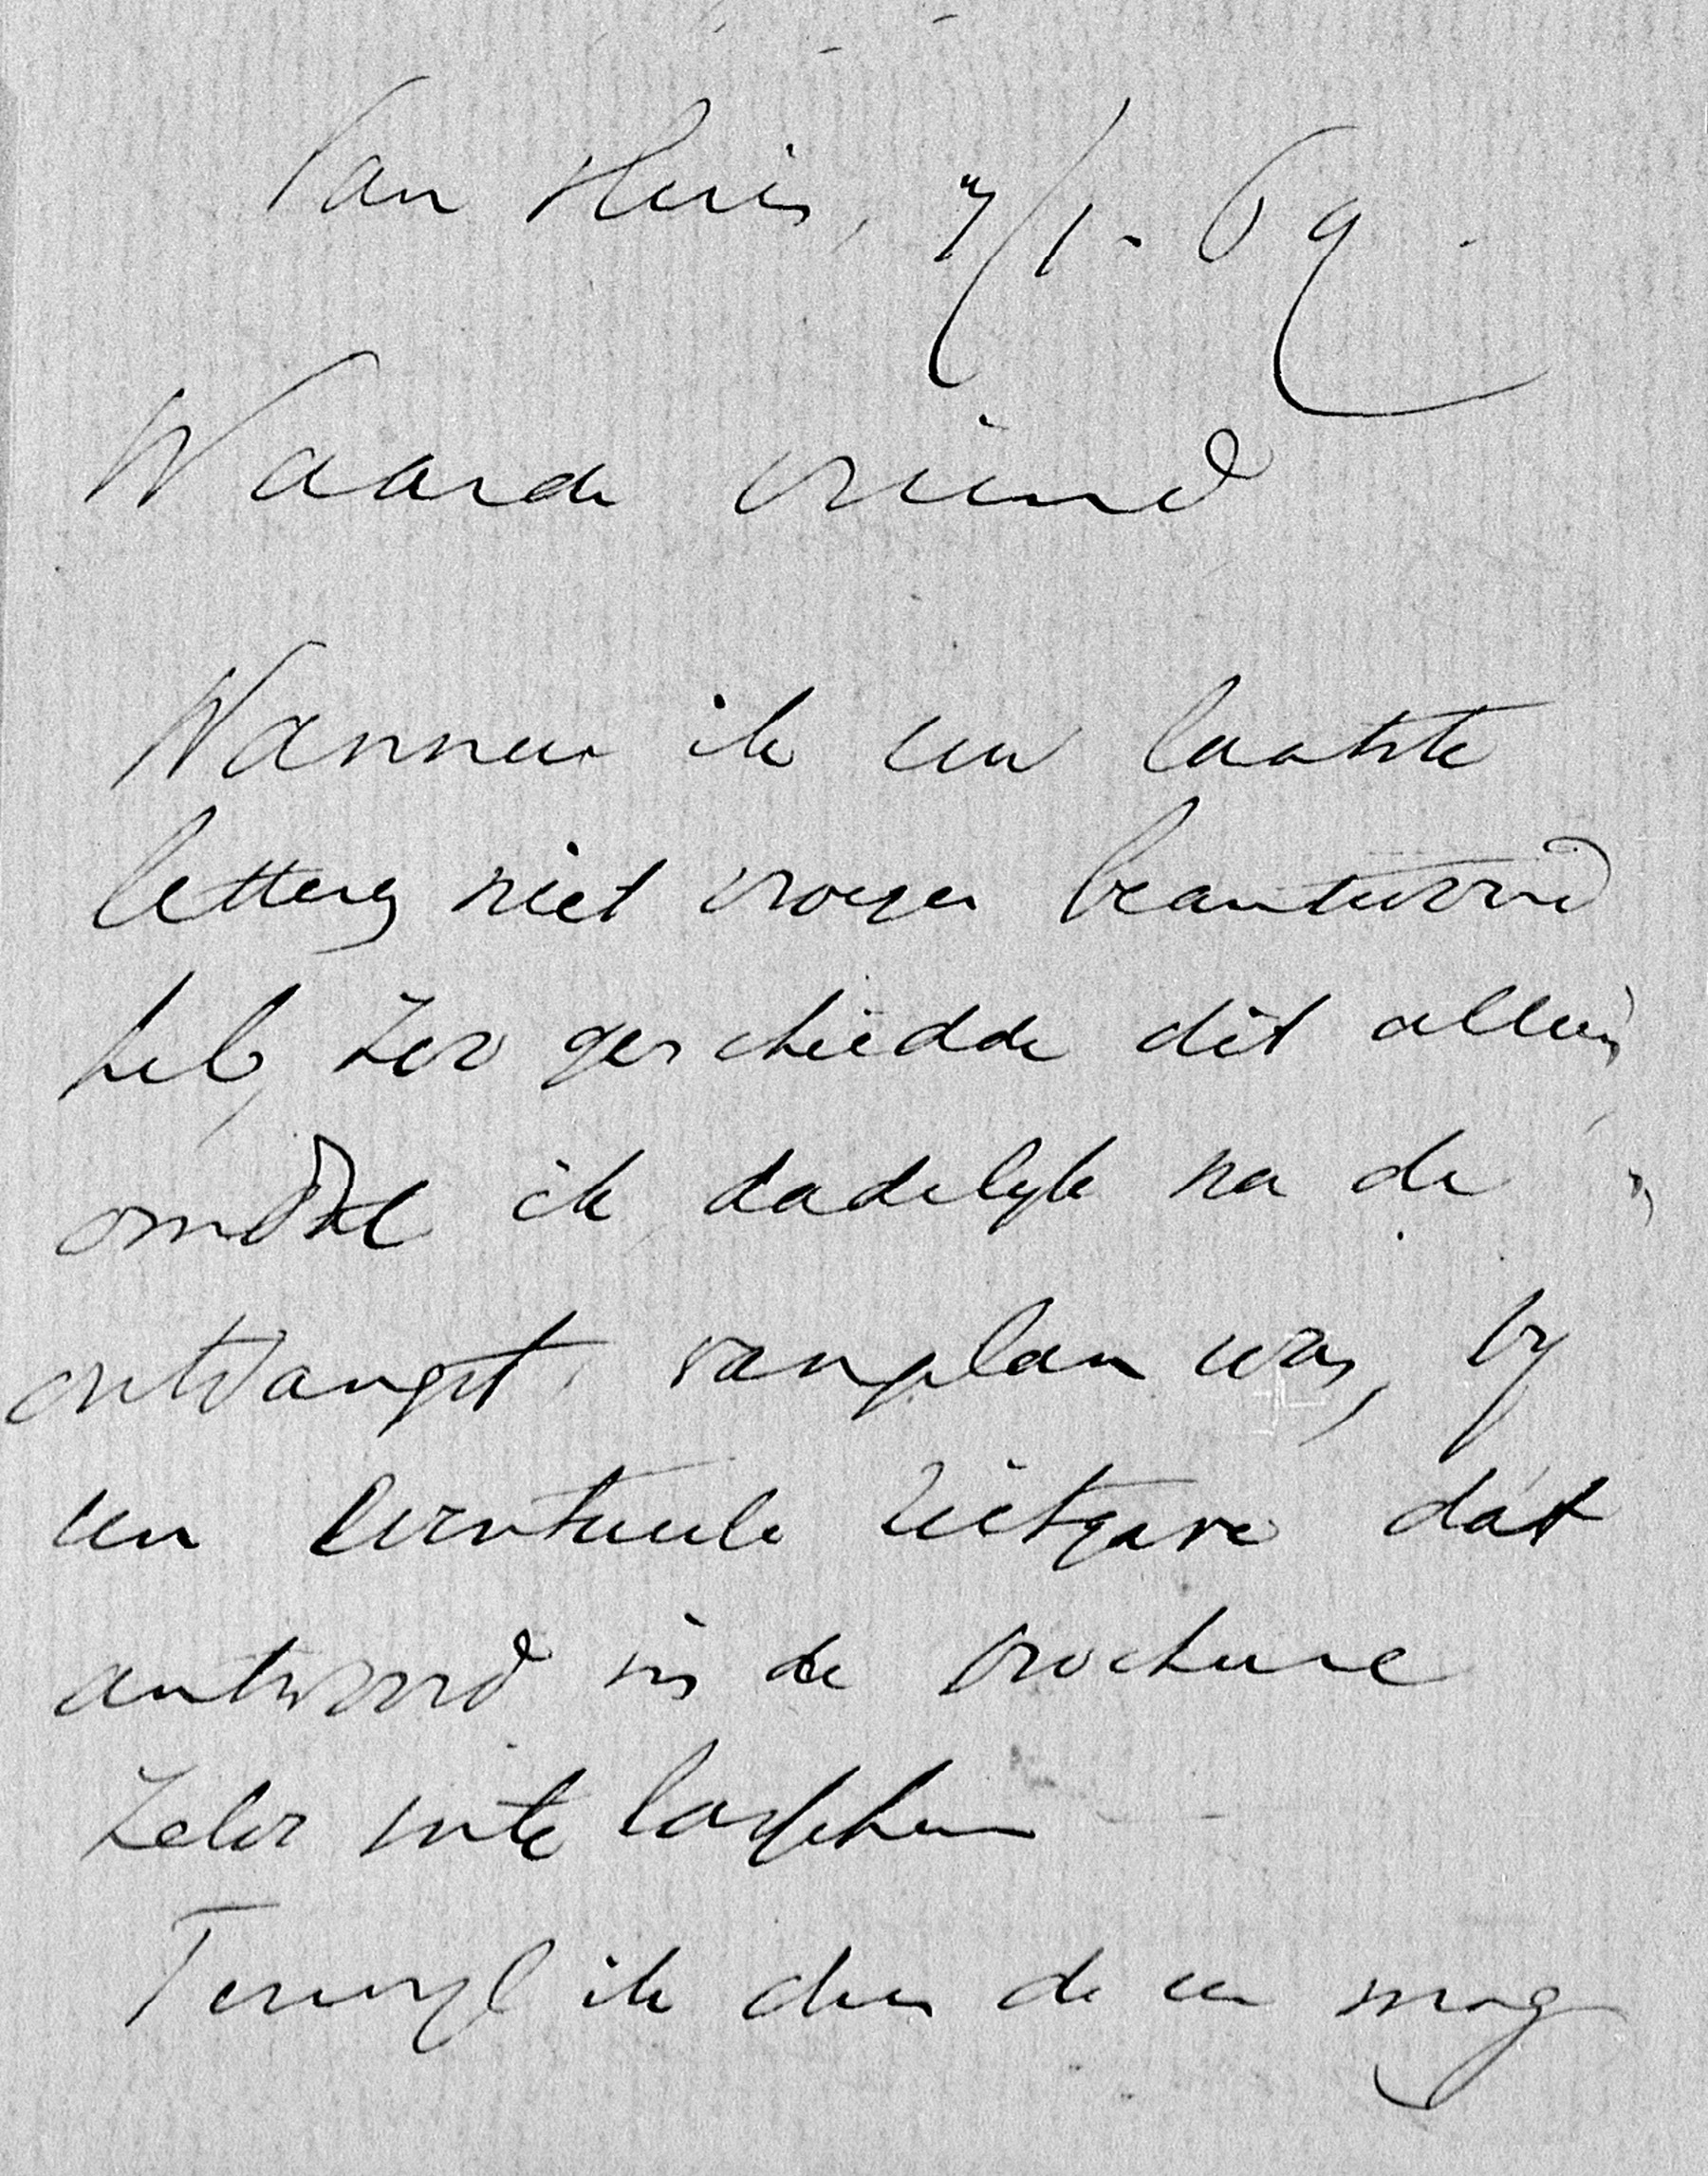 Van Huis, 7/1-69.
Waarde vriend
Wanneer ik uw laatste
letteren niet vroeger beantwoord
heb, zoo geschiedde dit alleen,
omdat ik dadelijk na de
ontvangst van plan was, by
een eventueele uitgave dat
antwoord in de brochure
zelve in te lasschen
Terwyl ik dus de een mog